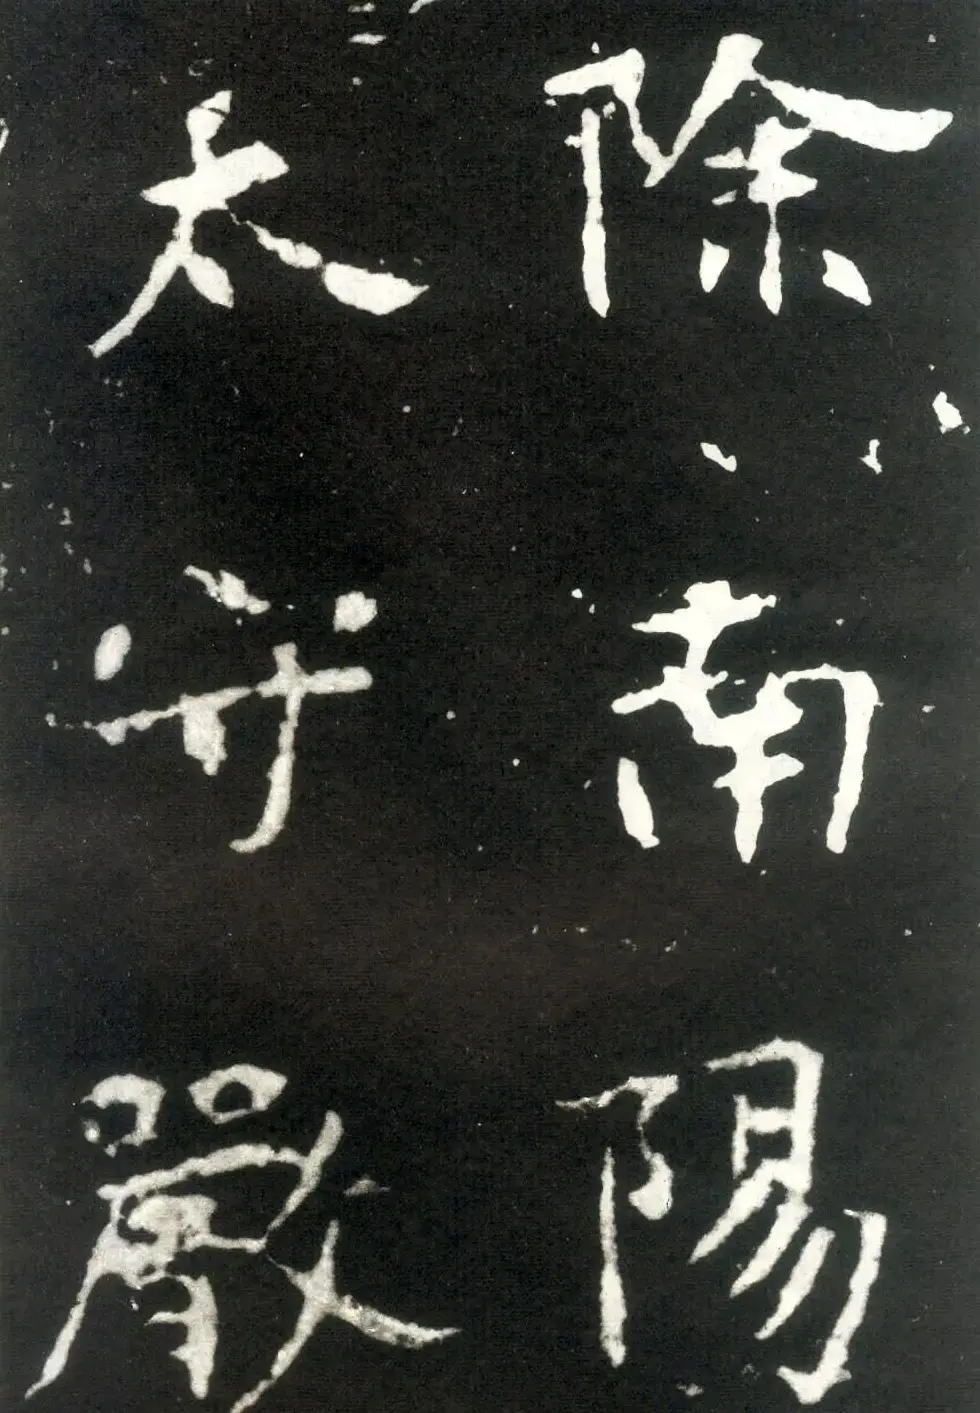 除南陽
太守嚴